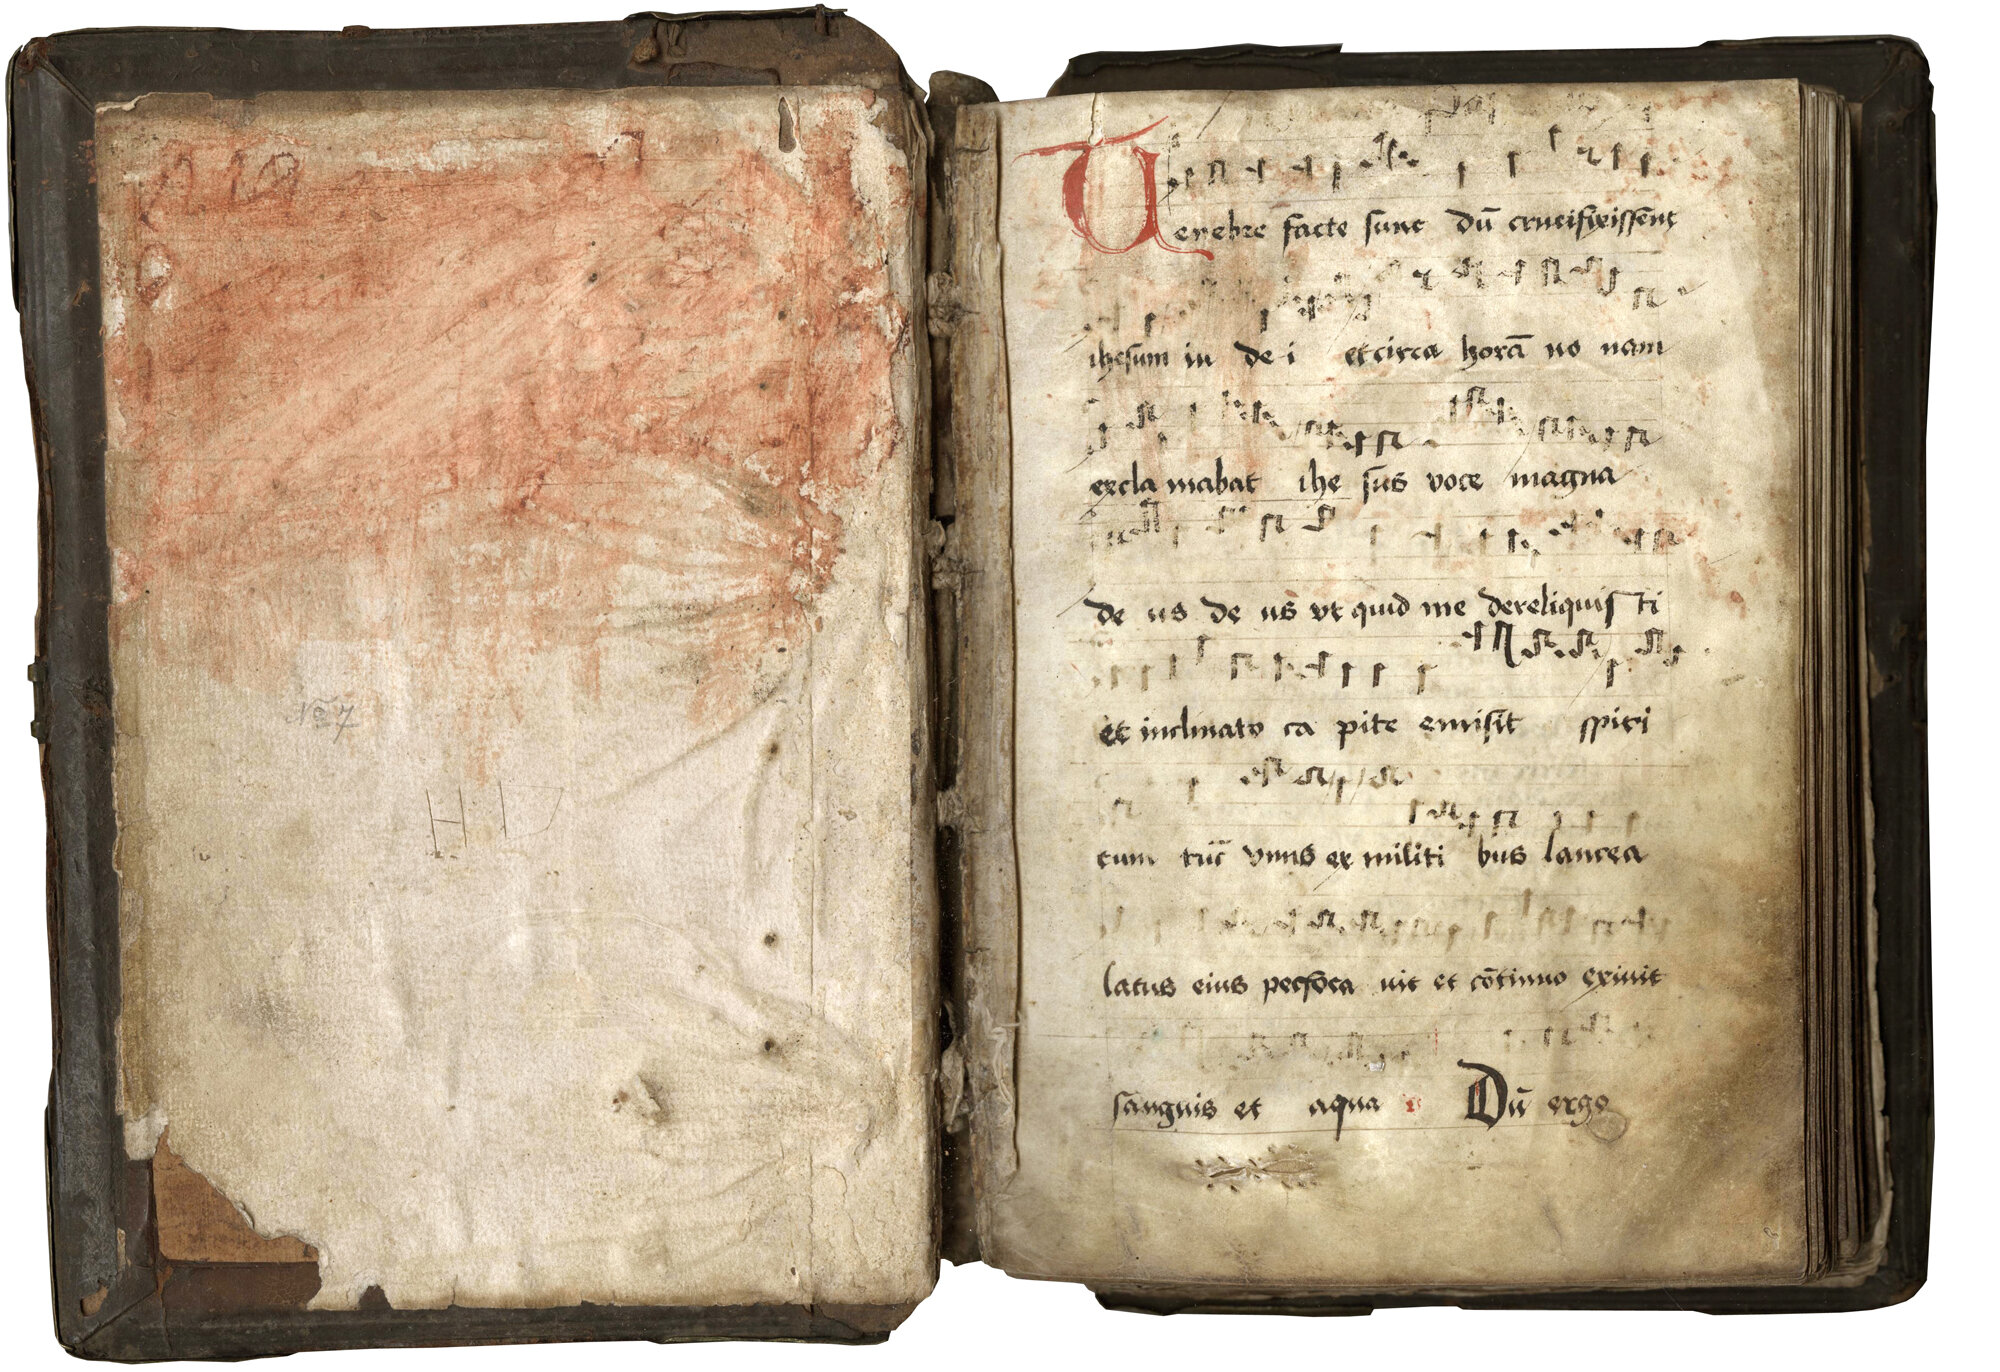 No 7
H D
Tenebre facte sunt dū crucifixissent
ihesum iu de i et circa horā no nam
excla mabat ihe sus voce magna
de us de us vt quid me dereliquis ti
et inclinato ca pite emisit spiri
tum tūc vnus ex militi bus lancea
latus eius perfora uit et cōtinuo exiuit
sanguis et aqua Dū ergo